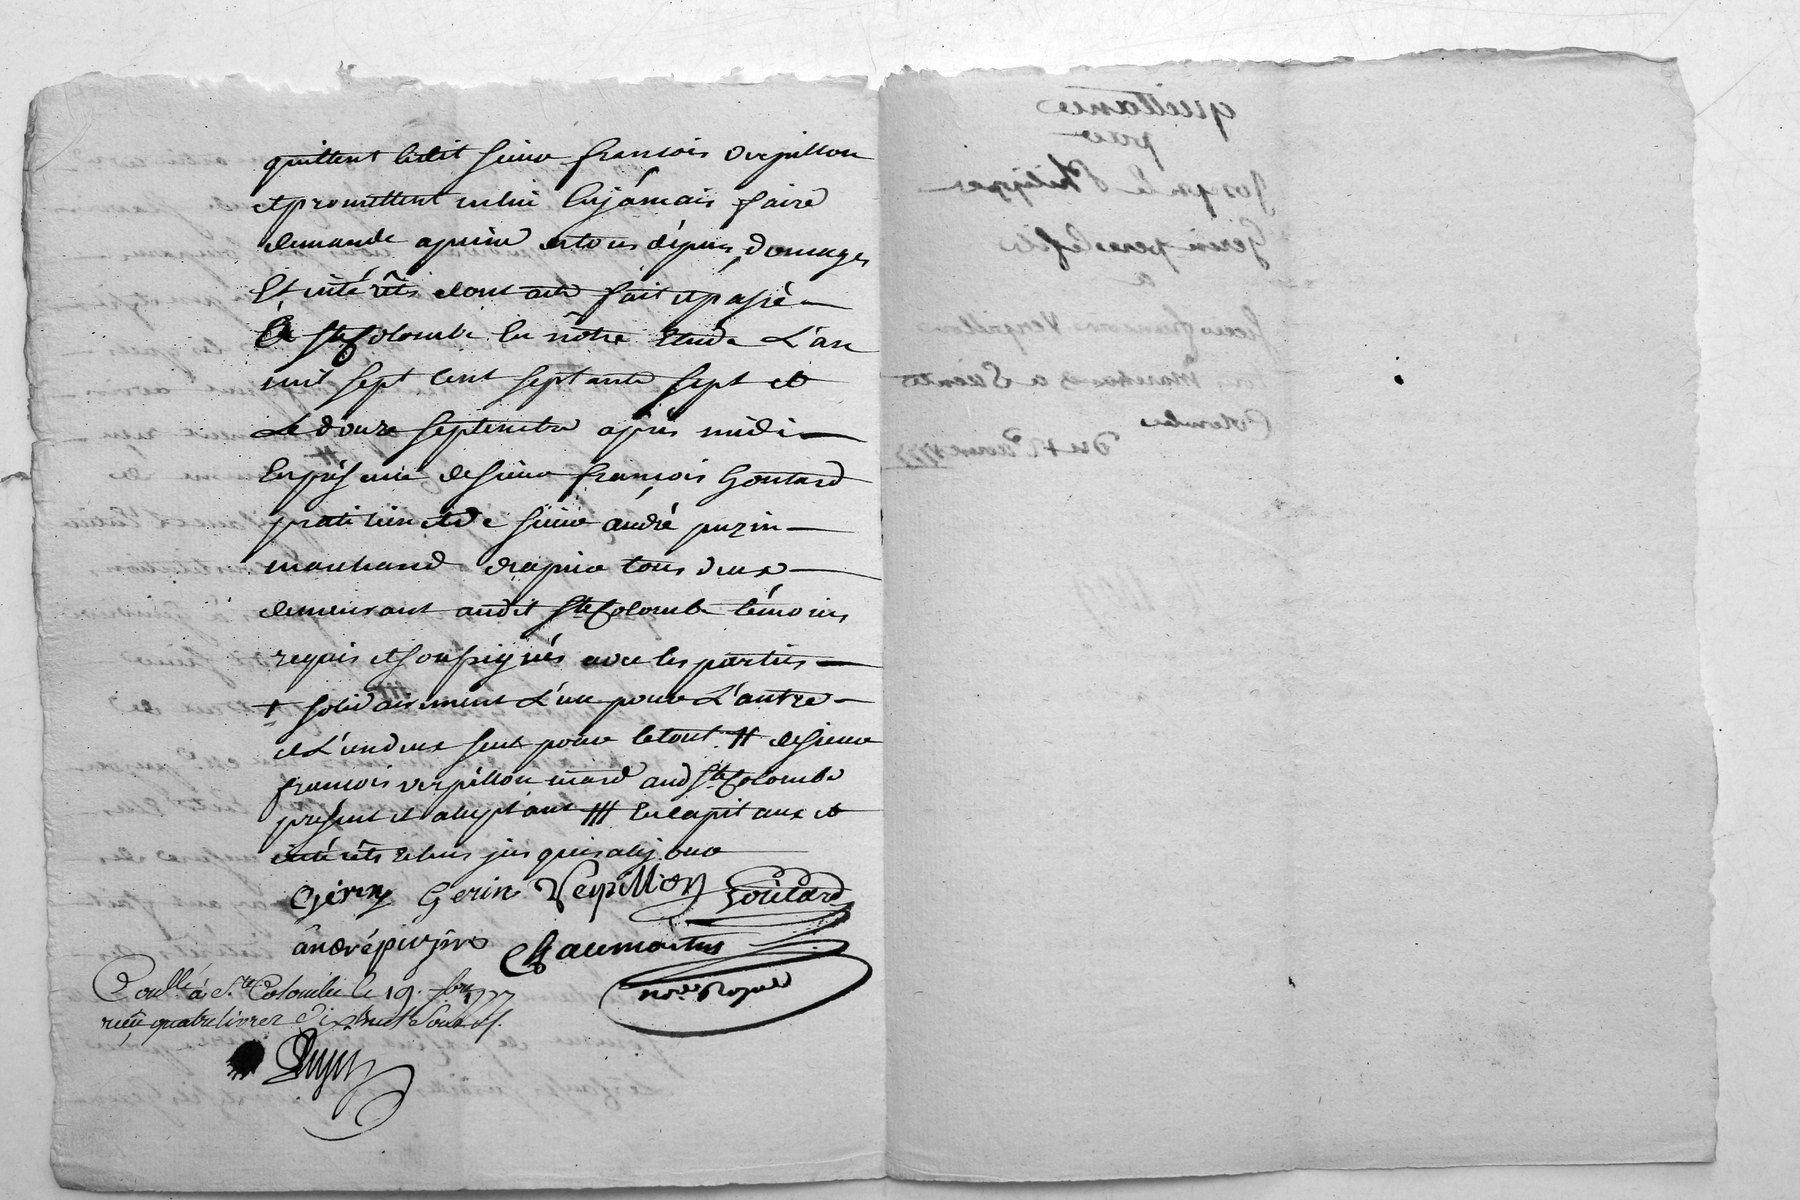 quittent ledit sieur françois verpillon
et promettent ne lui En jamais faire
demande a peine de tous dépens, domages
Et intérêts dont acte fait et passé
à Ste Colombe En nôtre Etude L'an
mil sept Cent septante sept et
Le douze septembre après midi
En présence de sieur françois Goutard
praticien et de sieur andré puzin
marchand drapier tous deux
demeurant audit Ste Colombe témoins
requis et soussignés avec les parties
+ solidairement L'un pour L'autre
et L'un deux seul pour le tout # de sieur
françois verpillon mard aud Ste Colombe
présent et aceptant ### En capitaux et
intérêts Echus jusques aujourd
Gérin Gerin Verpillon Goutard
àndré puzin Chaumartin
Nore Royal
Conllé à Ste Colombe le 19. 7bre 1777
reçu quatre livres dix huit Sous
quittance
pour
Gerin pere et fils
a
Sieur francois Verpillon
Marchand a Sainte
Colombe